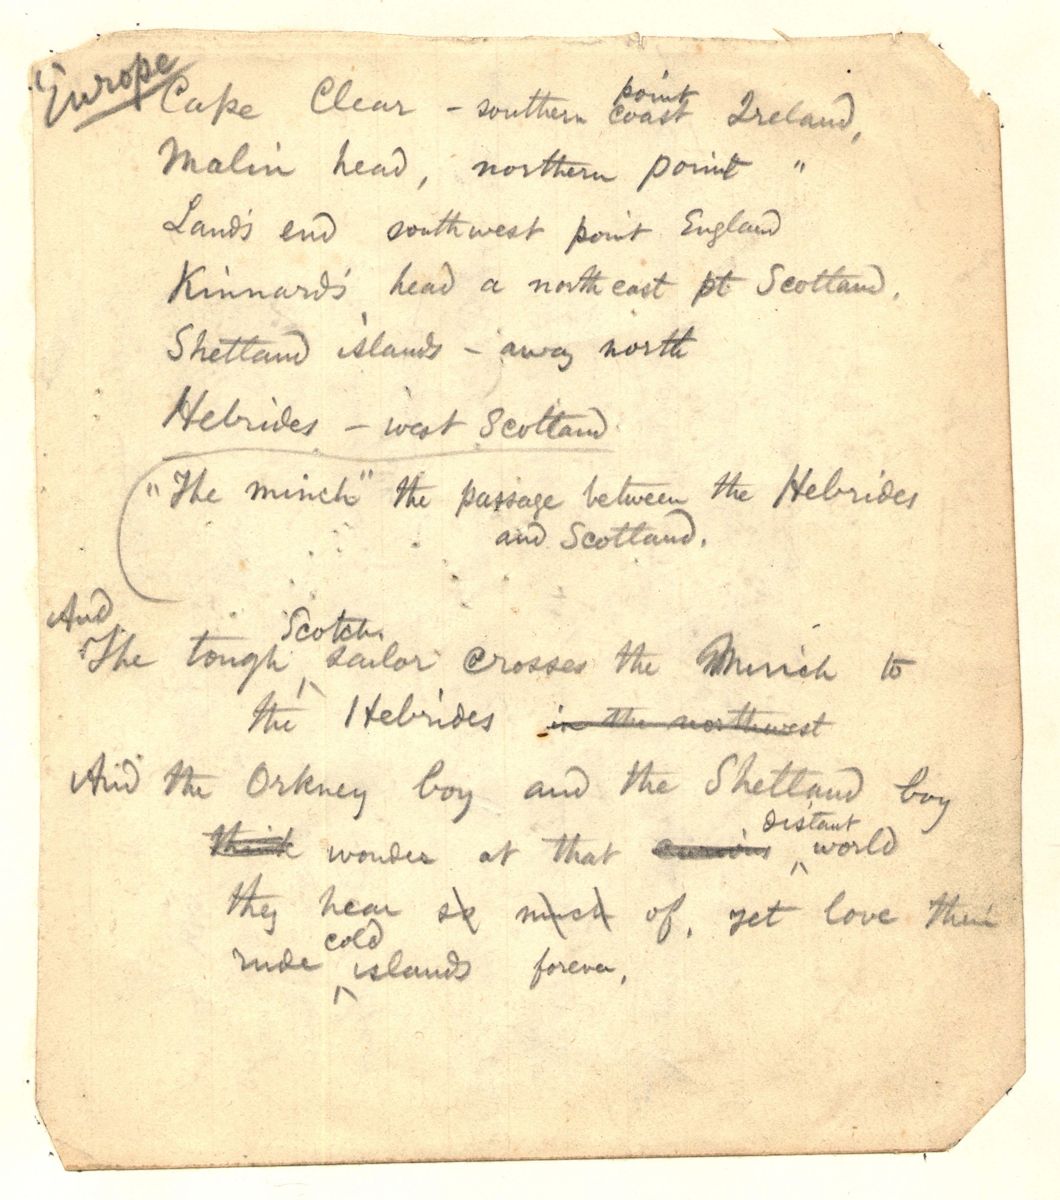 Europe
Cape Clear – southern point coast Ireland,
Malin head, northern point "
Land's end southwest point England
Kinnard's head a northeast pt Scotland.
Shetland islands – away north
Hebrides – west Scotland
"The minch" the passage between the Hebrides
and Scotland.
And
The tough Scotch sailor crosses the Minch to
the Hebrides in the northwest
And the Orkney boy and the Shetland boy
think wonder at that curious distant world
they hear so much of, yet love their
rude cold islands forever.